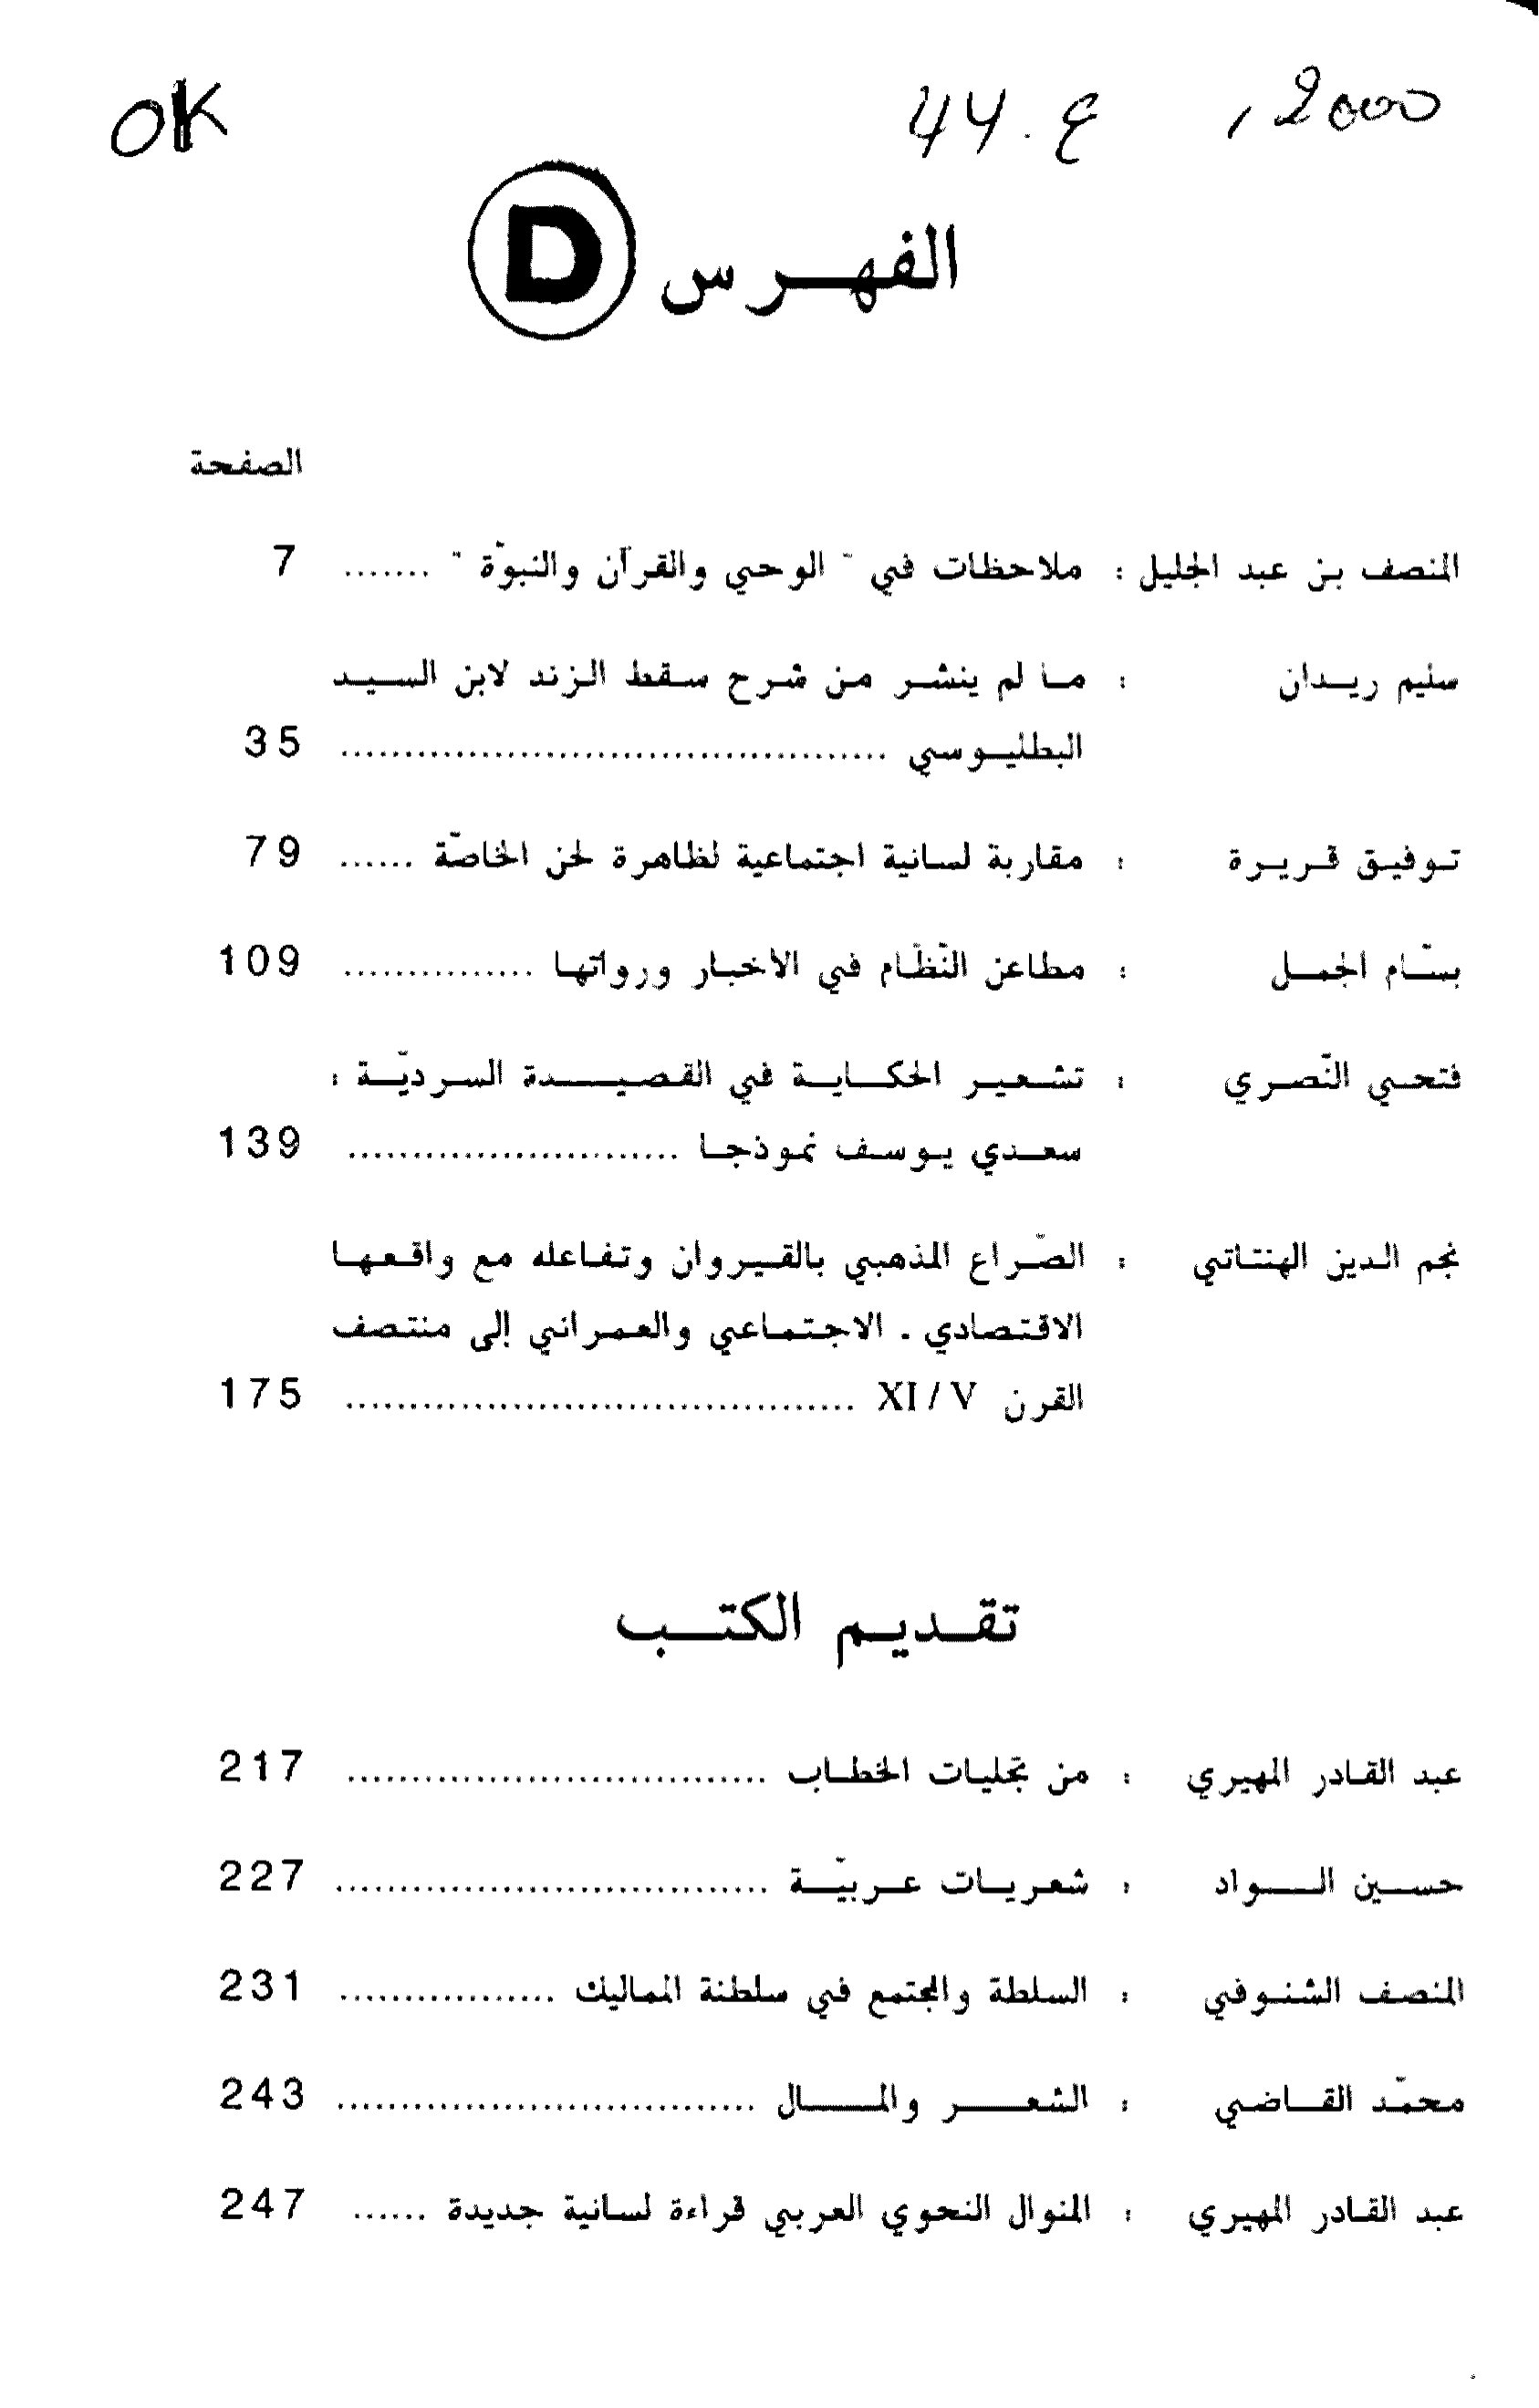 OK 44. ع , 2000
الفهرس D
الصفحة
المنصف بن عبد الجليل : ملاحظات في " الوحي والقرآن والنبوّة " ....... 7
سليم ريدان : ما لم ينشر من شرح سقط الزند لابن السيد
البطليوسي .......................................... 35
توفيق قريرة : مقاربة لسانية اجتماعية لظاهرة لحن الخاصّة ...... 79
بسّام الجمل : مطاعن النّظّام في الاخبار ورواتها ............... 109
فتحي النّصري : تشعير الحكاية في القصيدة السرديّة :
سعدي يوسف نموذجا .......................... 139
نجم الدين الهنتاتي : الصّراع المذهبي بالقيروان وتفاعله مع واقعها
الاقتصادي . الاجتماعي والعمراني إلى منتصف
القرن XI / V ........................................ 175
تقديم الكتب
عبد القادر المهيري : من تجليات الخطاب ................................. 217
حسين الواد : شعريات عربيّة .................................. 227
المنصف الشنوفي : السلطة والمجتمع في سلطنة المماليك ................. 231
محمّد القاضي : الشعر والمال ................................. 243
عبد القادر المهيري : المنوال النحوي العربي قراءة لسانية جديدة ...... 247